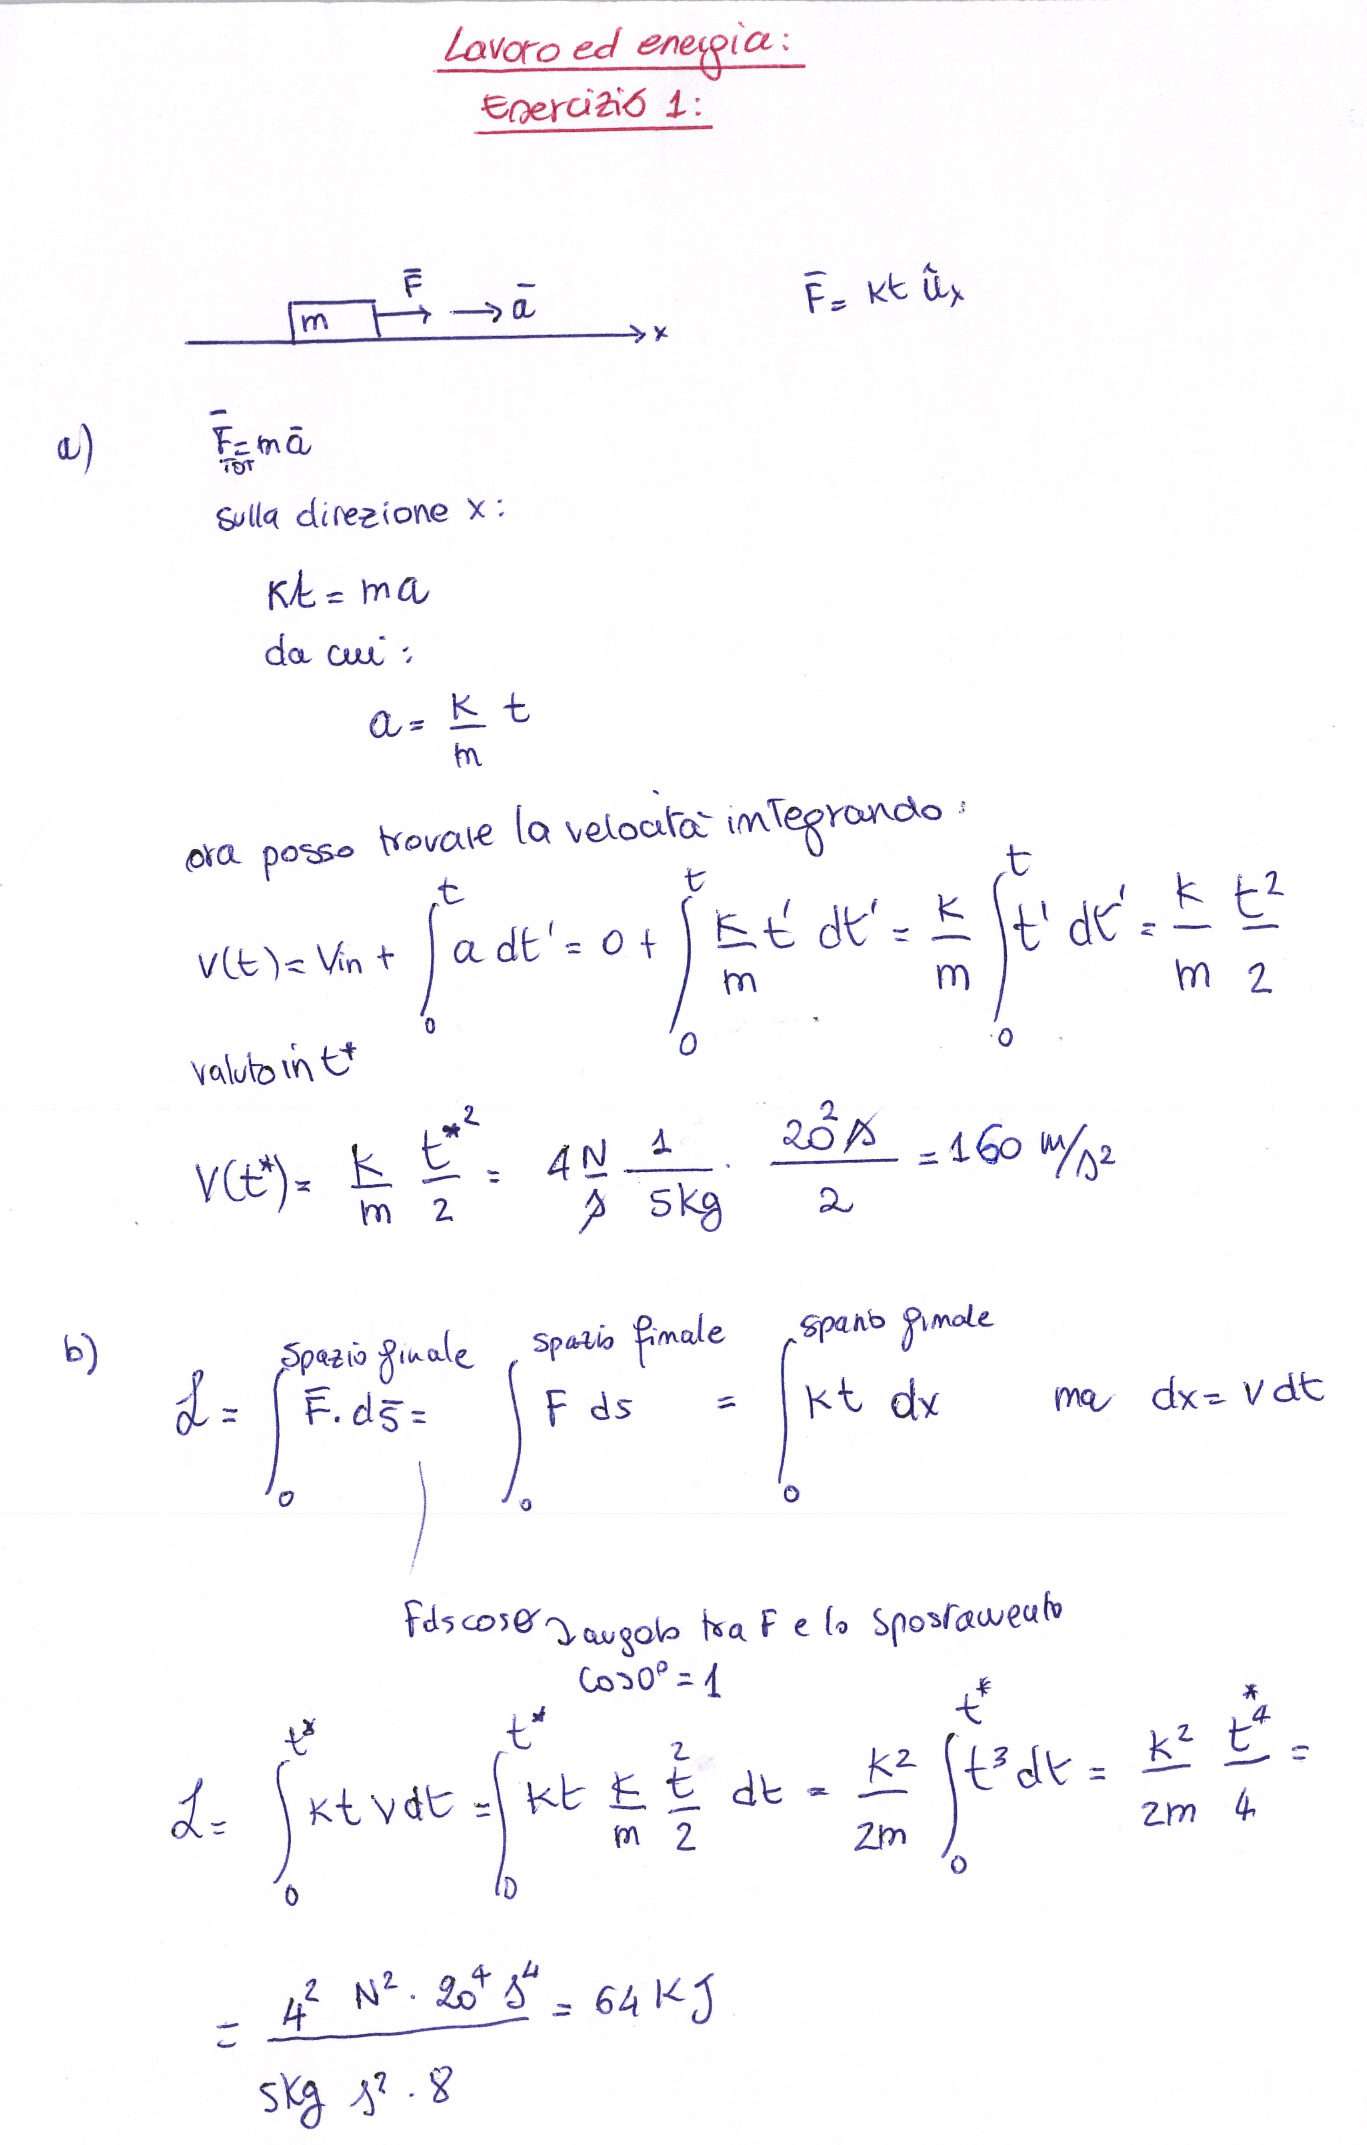 Lavoro ed energia:
Esercizio 1:
F̄ ā F̄ = kt ûₓ
m x
a) F̄_TOT = mā
sulla direzione x:
kt = ma
da cui:
a = k/m t
ora posso trovare la velocità integrando:
v(t) = Vin + ∫₀ᵗ a dt' = 0 + ∫₀ᵗ k/m t' dt' = k/m ∫₀ᵗ t' dt' = k/m t²/2
valuto in t*
V(t*) = k/m t*²/2 = 4 N/s 1/5kg · 20² s/2 = 160 m/s²
b) L = ∫₀^spazio finale F̄·ds̄ = ∫₀^spazio finale F ds = ∫₀^spazio finale kt dx ma dx = v dt
Fdscosθ angolo tra F e lo spostamento
cos0° = 1
L = ∫₀^t* kt vdt = ∫₀^t* kt k/m t²/2 dt = k²/2m ∫₀^t* t³ dt = k²/2m t*⁴/4 =
= 4² N² · 20⁴ s⁴ / 5kg s² · 8 = 64 KJ